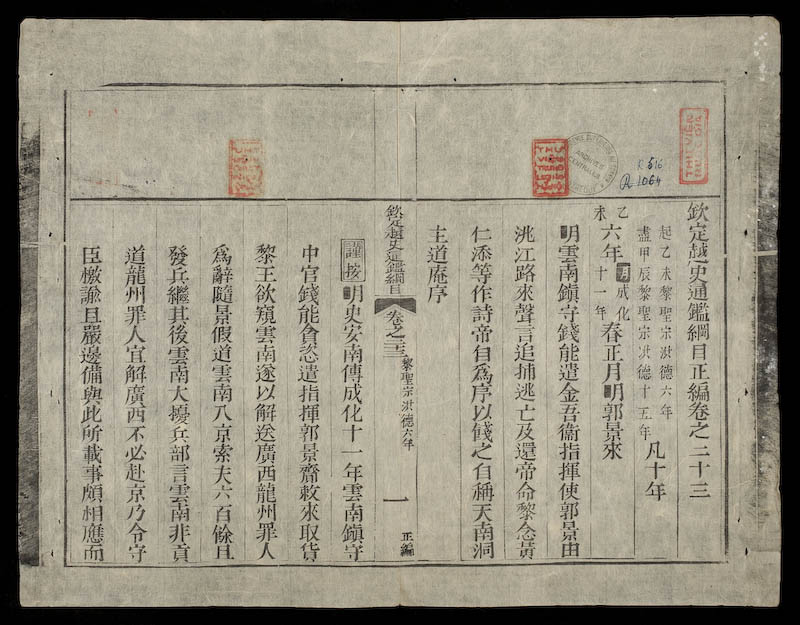 欽定越史通鑑綱目正編卷之二十三
起乙未黎聖宗洪德六年
盡甲辰黎聖宗洪德十五年
凡十年
乙未六年明成化十一年春正月明郭景來
明雲南鎮守錢能遣金吾衞指揮使郭景由
洮江路來聲言追捕逃亡及還帝命黎念黃
仁添等作詩帝自爲序以餞之自稱天南洞
主道庵序
欽定越史通鑑綱目 卷之二十三 黎聖宗洪德六年 一 正編
謹按明史安南傳成化十一年雲南鎮守
中官錢能貪恣遣指揮郭景齎敕來取貨
黎王欲窺雲南遂以解送廣西龍州罪人
爲辭隨景假道雲南入京索夫六百餘且
發兵繼其後雲南大擾兵部言雲南非貢
道龍州罪人宜解廣西不必赴京乃令守
臣檄諭且嚴邊備與此所載事頗相應而
R 516
R 1064
ARCHIVES CENTRALES